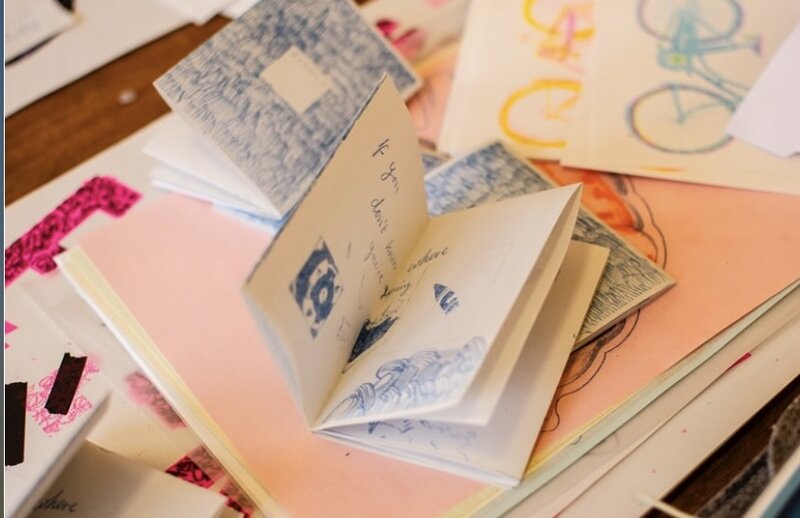 If you
don't know
where
you're going
where